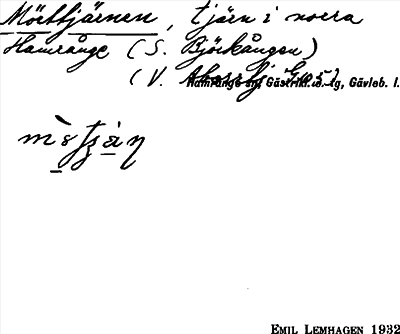 Mörttjärnen, tjärn i norra
Hamrånge (S. Björkången)
(V.
Hamrånge sn, Gästrikl. ö. tg, Gävleb. l.
EMIL LEMHAGEN 1932